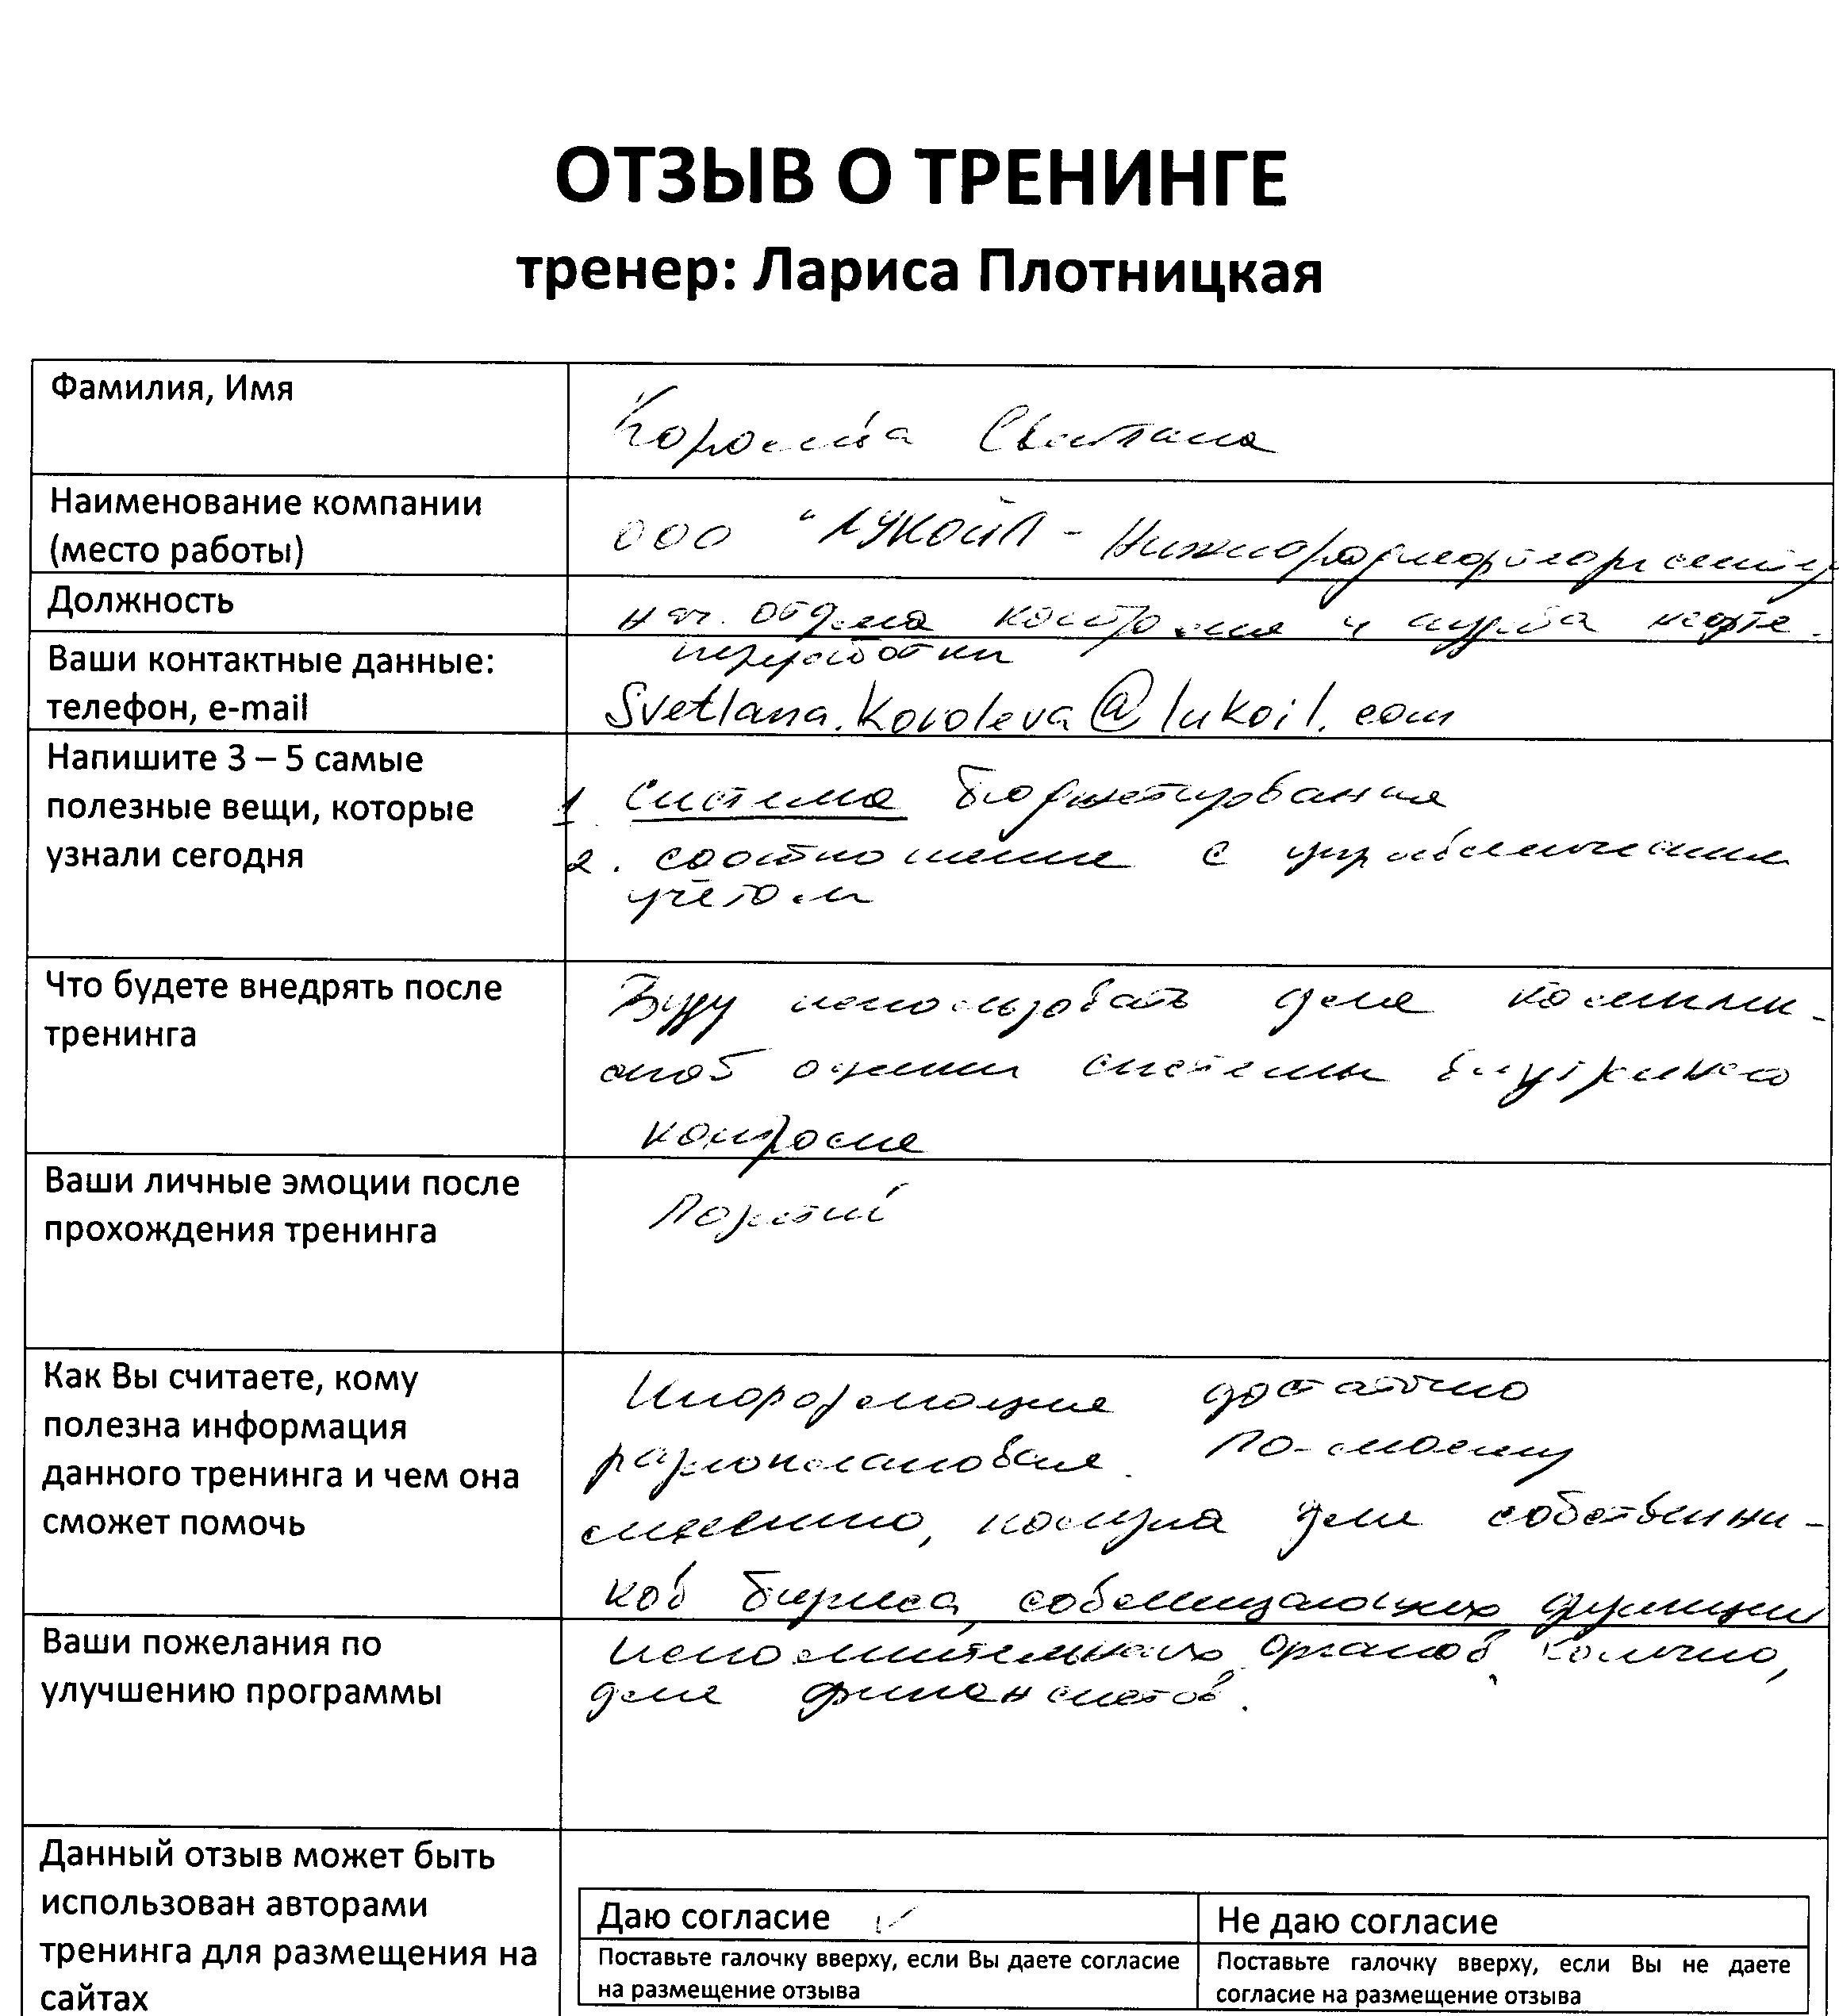 ОТЗЫВ О ТРЕНИНГЕ
тренер: Лариса Плотницкая
Фамилия, Имя
Королёва Светлана
Наименование компании
(место работы)
ООО "ЛУКОЙЛ - Нижегороднефтеоргсинтез
Должность
нач. отдела контроля и учёта нефте-
переработки
Ваши контактные данные:
телефон, e-mail
Svetlana.Koroleva@lukoil.com
Напишите 3 – 5 самые
полезные вещи, которые
узнали сегодня
1. Система бюджетирования
2. соотношение с управленческим
учётом
Что будете внедрять после
тренинга
Буду использовать для
оценки системы внутреннего
контроля
Ваши личные эмоции после
прохождения тренинга
Позитив
Как Вы считаете, кому
полезна информация
данного тренинга и чем она
сможет помочь
Информация достаточно
разноплановая. По-моему
мнению, полезна для собственни-
ков бизнеса, совмещающих функции
исполнительных органов. Конечно,
для финансистов.
Ваши пожелания по
улучшению программы
Данный отзыв может быть
использован авторами
тренинга для размещения на
сайтах
Даю согласие ✓
Поставьте галочку вверху, если Вы даете согласие
на размещение отзыва
Не даю согласие
Поставьте галочку вверху, если Вы не даете
согласие на размещение отзыва